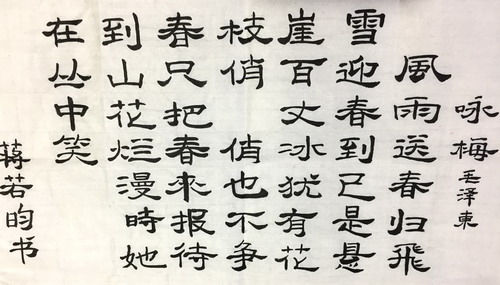 咏梅 毛泽東
風雨送春归飛
雪迎春到已是悬
崖百丈冰犹有花
枝俏 俏也不争
春只把春來报待
到山花烂漫時她
在丛中笑
蒋若昀书